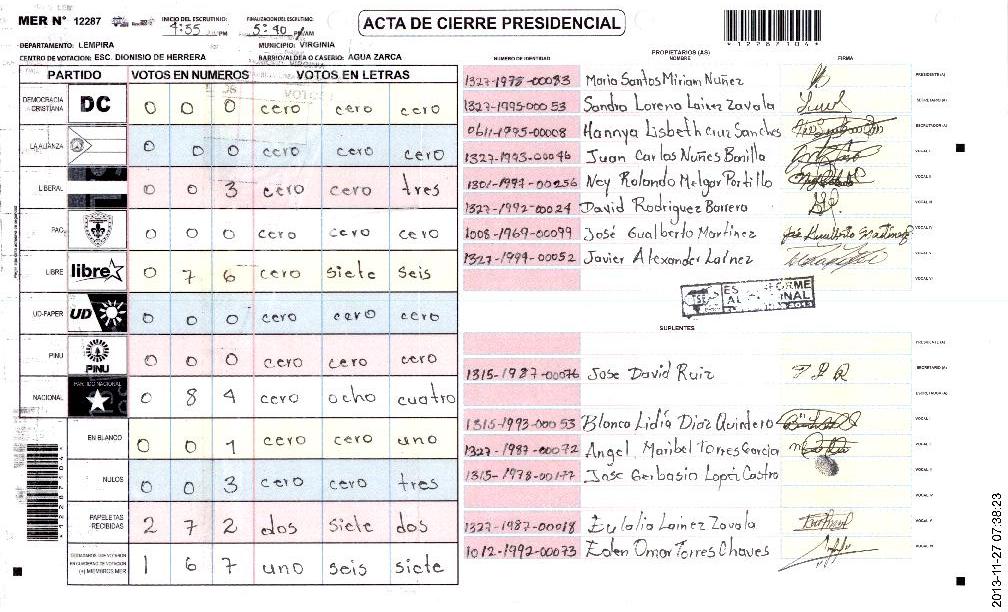 MER Nº 12287
INICIO DEL ESCRUTINIO: 4:55 PM
FINALIZACION DEL ESCRUTINIO: 5:40 PM/AM
ACTA DE CIERRE PRESIDENCIAL
*12287104*
DEPARTAMENTO: LEMPIRA
MUNICIPIO: VIRGINIA
CENTRO DE VOTACION: ESC. DIONISIO DE HERRERA
BARRIO/ALDEA O CASERIO: AGUA ZARCA
PARTIDO VOTOS EN NUMEROS VOTOS EN LETRAS
DEMOCRACIA CRISTIANA DC 0 0 0 cero cero cero
LA ALIANZA 0 0 0 cero cero cero
LIBERAL 0 0 3 cero cero tres
PAC 0 0 0 cero cero cero
LIBRE libre 0 7 6 cero siete seis
UD-FAPER UD 0 0 0 cero cero cero
PINU PINU 0 0 0 cero cero cero
NACIONAL PARTIDO NACIONAL 0 8 4 cero ocho cuatro
EN BLANCO 0 0 1 cero cero uno
NULOS 0 0 3 cero cero tres
PAPELETAS RECIBIDAS 2 7 2 dos siete dos
CIUDADANOS QUE VOTARON EN CUADERNO DE VOTACION (+) MIEMBROS MER 1 6 7 uno seis siete
PROPIETARIOS (AS)
NUMERO DE IDENTIDAD NOMBRE FIRMA
1327-1978-00083 Maria Santos Miriam Nuñez PRESIDENTE(A)
1327-1995-00053 Sandra Lorena Lainez Zavala SECRETARIO(A)
0611-1975-00008 Hannya Lisbeth Cruz Sanches ESCRUTADOR(A)
1327-1993-00046 Juan Carlos Nuñes Bonilla VOCAL I
1301-1997-00256 Ney Rolando Melgar Portillo VOCAL II
1327-1992-00024 David Rodriguez Barrera VOCAL III
1008-1969-00099 José Gualberto Martinez VOCAL IV
1327-1994-00052 Javier Alexander Lainez VOCAL V
VOCAL VI
ES CONFORME AL ORIGINAL
SUPLENTES
PRESIDENTE(A)
1315-1987-00076 Jose David Ruiz SECRETARIO(A)
ESCRUTADOR(A)
1315-1993-00053 Blanca Lidia Diaz Quintero VOCAL I
1327-1987-00072 Angel Maribel Torres Garcia VOCAL II
1315-1978-00177 Jose Gerbasio Lopez Castro VOCAL III
VOCAL IV
1327-1987-00018 Eulalia Lainez Zavala VOCAL V
1012-1992-00073 Eden Omar Torres Chaves VOCAL VI
*12287104*
2013-11-27 07:38:23